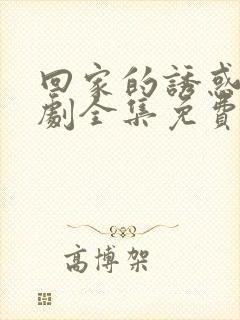 回家的誘惑
劇全集免費
高博架